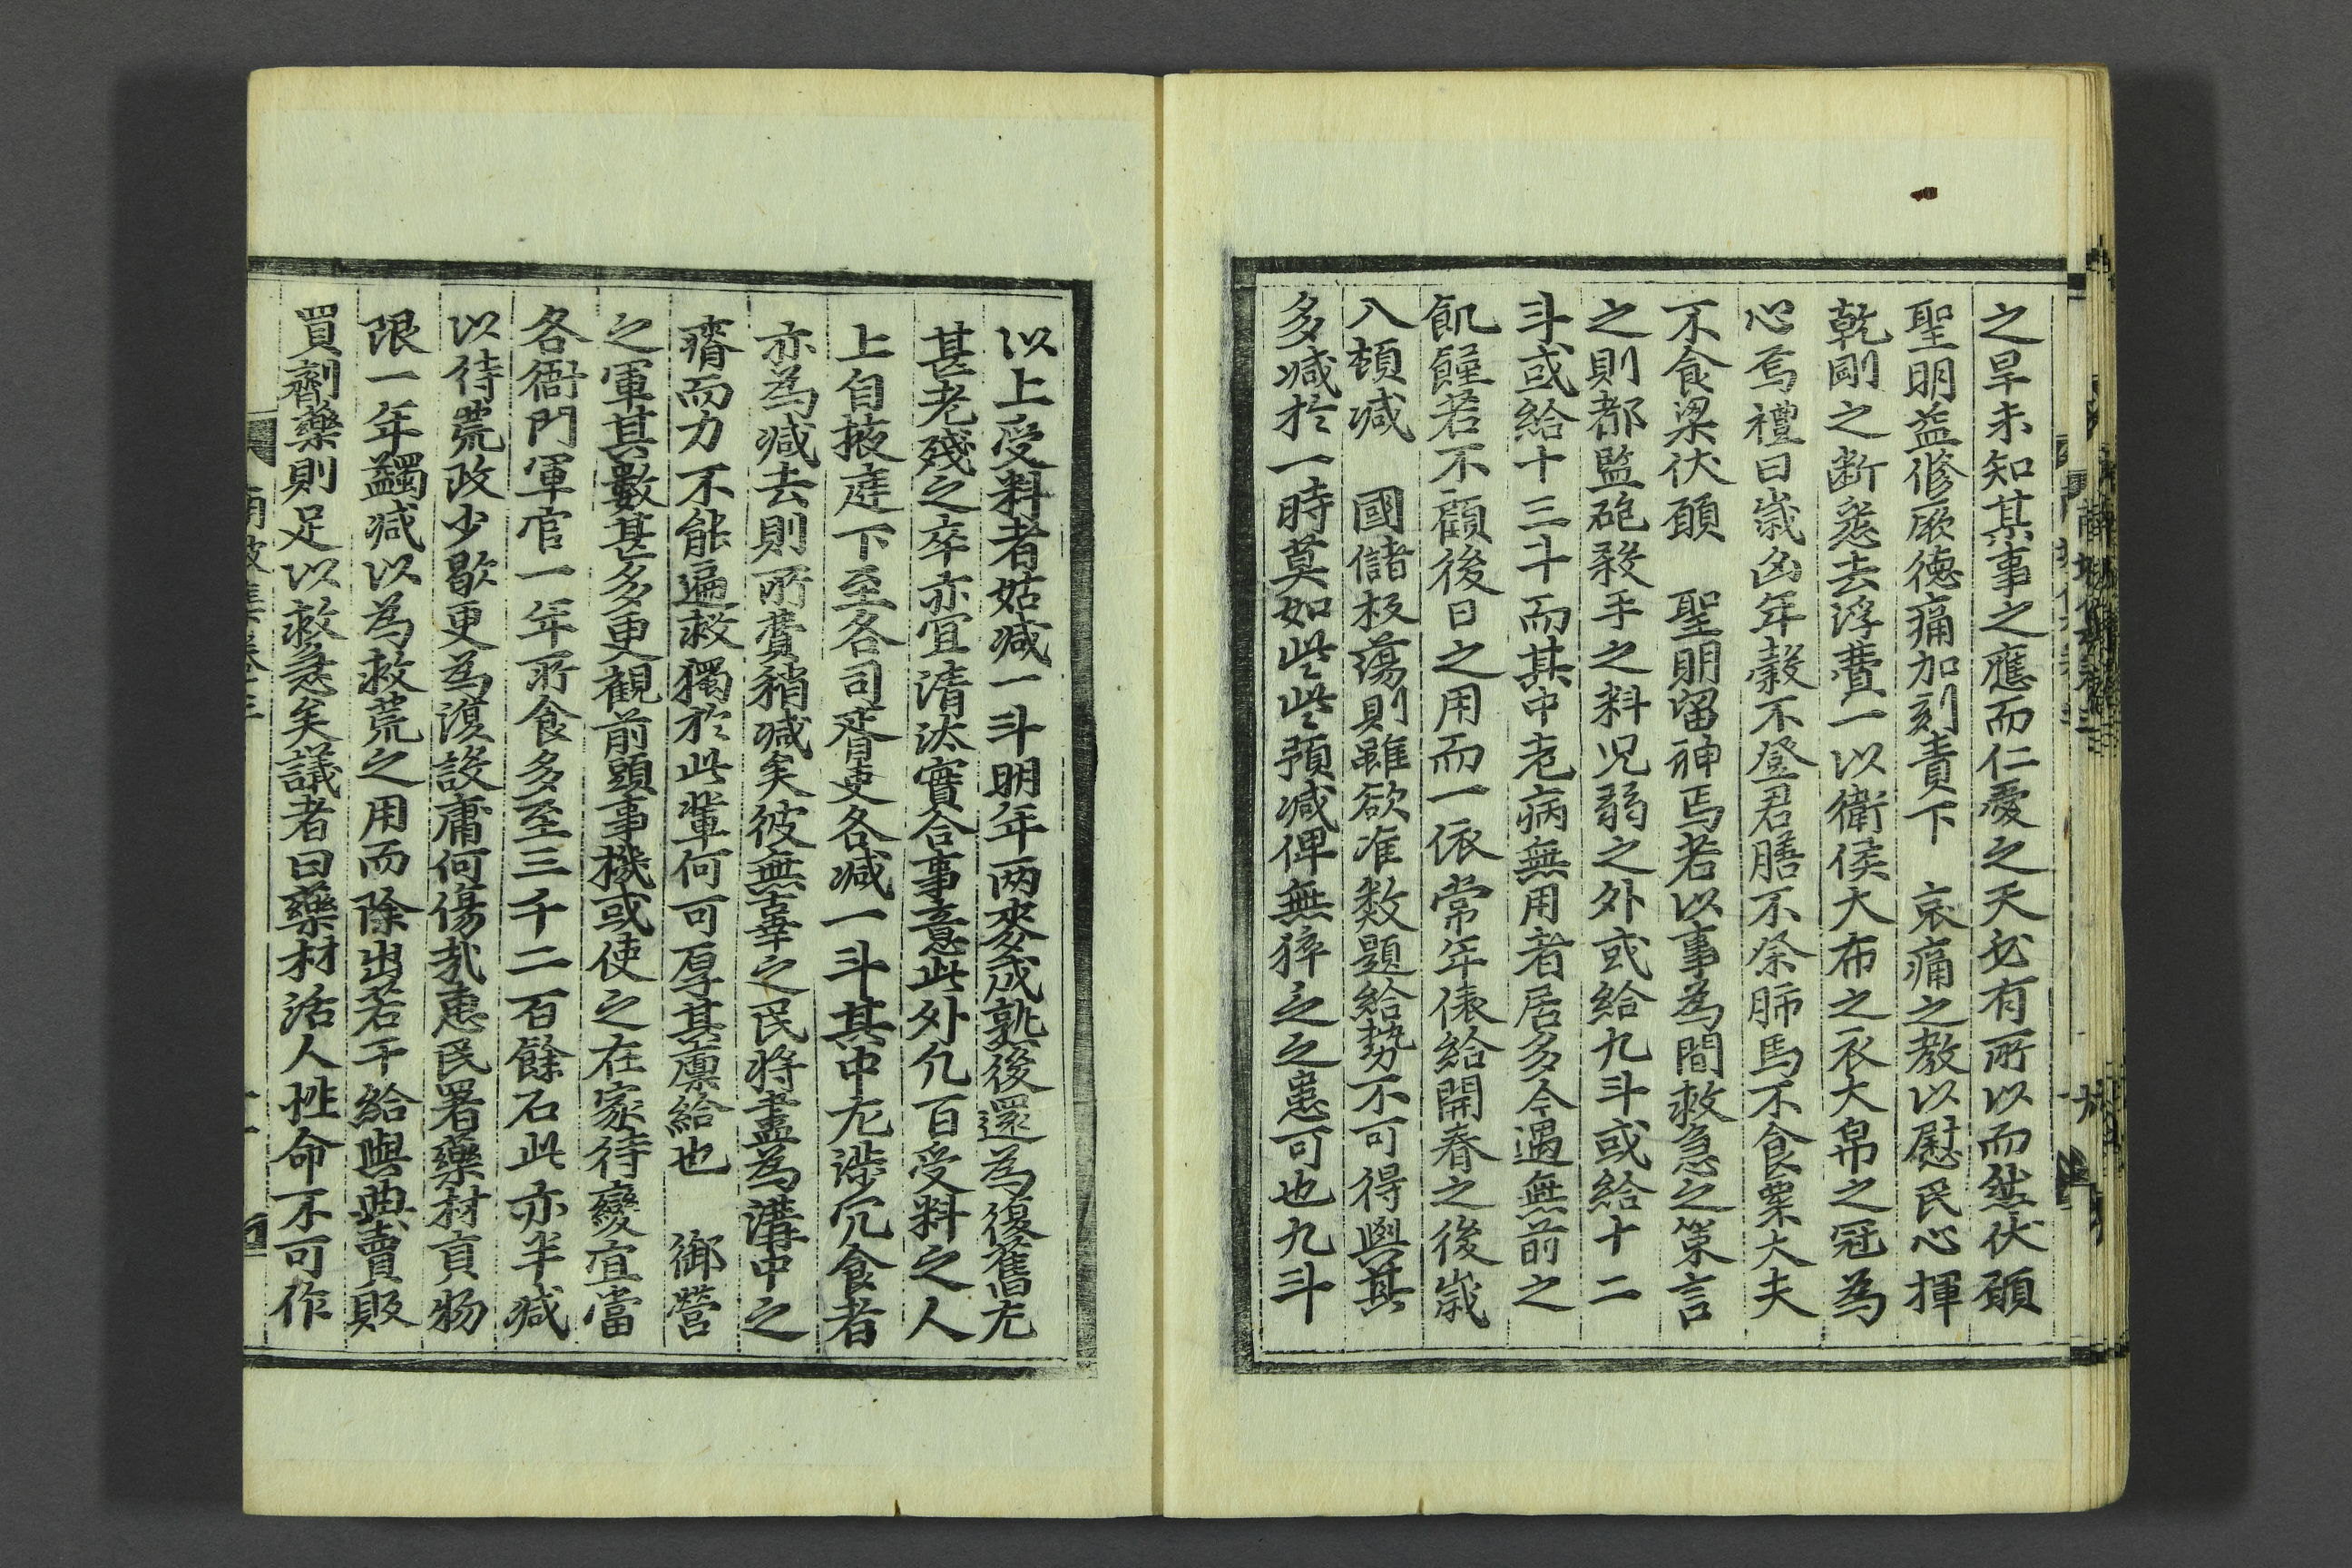 之旱未知某事之應而仁愛之天必有所以而然伏願
聖明益修厥德痛加刻責下 哀痛之教以慰民心揮
乾剛之断悉去浮費一以衛侯大布之衣大帛之冠為
心焉禮曰歲凶年穀不登君膳不祭肺馬不食粟大夫
不食粱伏願 聖明留神焉若以事為間救急之策言
之則都監砲殺手之料児弱之外或給九斗或給十二
斗或給十三斗而其中老病無用者居多今遇無前之
飢饉若不顧後日之用而一依常年俵給開春之後歲
入頓減 國儲板蕩則雖欲准數題給勢不可得與其
多减於一時莫如些些預减俾無猝乏之患可也九斗
以上受料者姑减一斗明年两麥成熟後還為復舊尤
甚老殘之卒亦宜清汰實合事意此外凡百受料之人
上自掖庭下至各司胥吏各减一斗其中尤涉冗食者
亦為减去則所費稍减矣彼無辜之民将盡為溝中之
瘠而力不能遍救獨於此輩何可厚其廩給也 御營
之軍其數甚多更觀前頭事機或使之在家待變宜當
各衙門軍官一年所食多至三千二百餘石此亦半减
以待荒政少歇更為復設庸何傷哉惠民署藥材貢物
限一年蠲减以為救荒之用而除出若干給與典賣販
買劑藥則足以救急矣議者曰藥材活人性命不可作